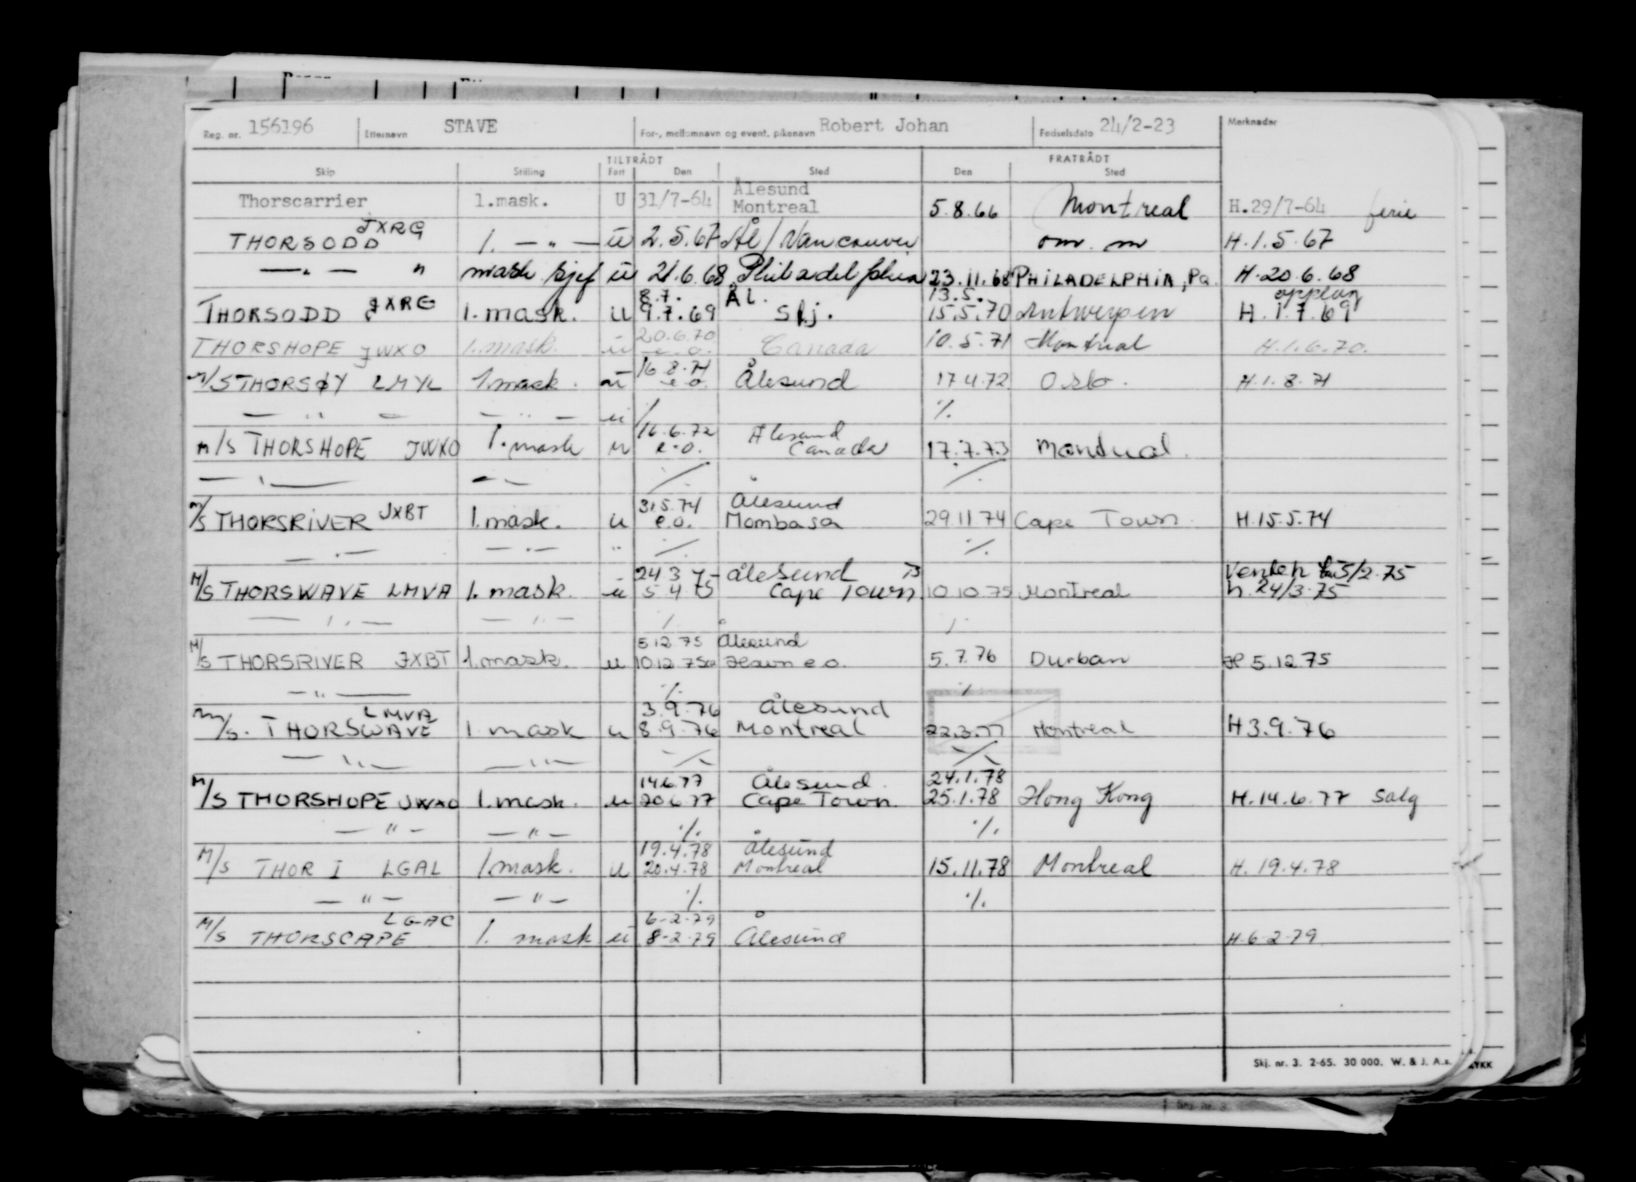 Reg. nr. 156196 Etternavn STAVE For-, mellomnavn og event. pikenavn Robert Johan Fødselsdato 24/2-23 Merknader
TILTRÅDT FRATRÅDT
Skip Stilling Fart Den Sted Den Sted
Thorscarrier 1.mask. U 31/7-64 Ålesund Montreal 5.8.66 Montreal H.29/7-64 ferie
THORSODD JXRG 1. — " — ü 2.5.67 Ål / Vancouver om. m H.1.5.67
— " — " mask kjef ü 21.6.68 Philadelphia 23.11.68 PHILADELPHIA, Pa. H.20.6.68
THORSODD JXRG 1. mask. u 8.7. 9.7.69 ÅL. Skj. 13.5. 15.5.70 Antwerpen H. 1.7.69
THORSHOPE JWXO 1. mask. ü 20.6.70 e.o. Canada 10.5.71 Montreal H.1.6.70.
M/S THORSØY LMYL 1. mask. ü 16.8.71 e.o. Ålesund 17.4.72 Oslo. H.1.8.71
— " — — " — ü % %
M/S THORSHOPE JWXO 1. mask u 16.6.72 e.o. Ålesund Canada 17.7.73 Montreal.
— " — — " — % %
M/S THORSRIVER JXBT 1. mask. u 31.5.74 e.o. Ålesund Mombasa 29.11.74 Cape Town. H.15.5.74
— " — — " — " % %
M/S THORSWAVE LMVA 1. mask. ü 24 3 75 5 4 75 Ålesund Cape Town 10.10.75 Montreal 5/2.75 h. 24/3.75
— " — — " — % %
M/S THORSRIVER JXBT 1. mask. u 5.12.75 10.12.75 Ålesund e.o. 5.7.76 Durban H 5.12.75
— " — % %
M/S. THORSWAVE LMVA 1 mask u 3.9.76 8.9.76 Ålesund Montreal 22.3.77 Montreal H 3.9.76
— " — — " — % %
M/S THORSHOPE JWXO 1. mask. u 14.6.77 20.6.77 Ålesund. Cape Town. 24.1.78 25.1.78 Hong Kong H.14.6.77 Salg
— " — — " — % %
M/S THOR I LGAL 1. mask. u 19.4.78 20.4.78 Ålesund Montreal 15.11.78 Montreal H. 19.4.78
— " — — " — % %
M/S THORSCAPE LGAC 1. mask ü 6-2-79 8-2-79 Ålesund H.6-2-79
Skj. nr. 3. 2-65. 30 000. W. & J. A.s.